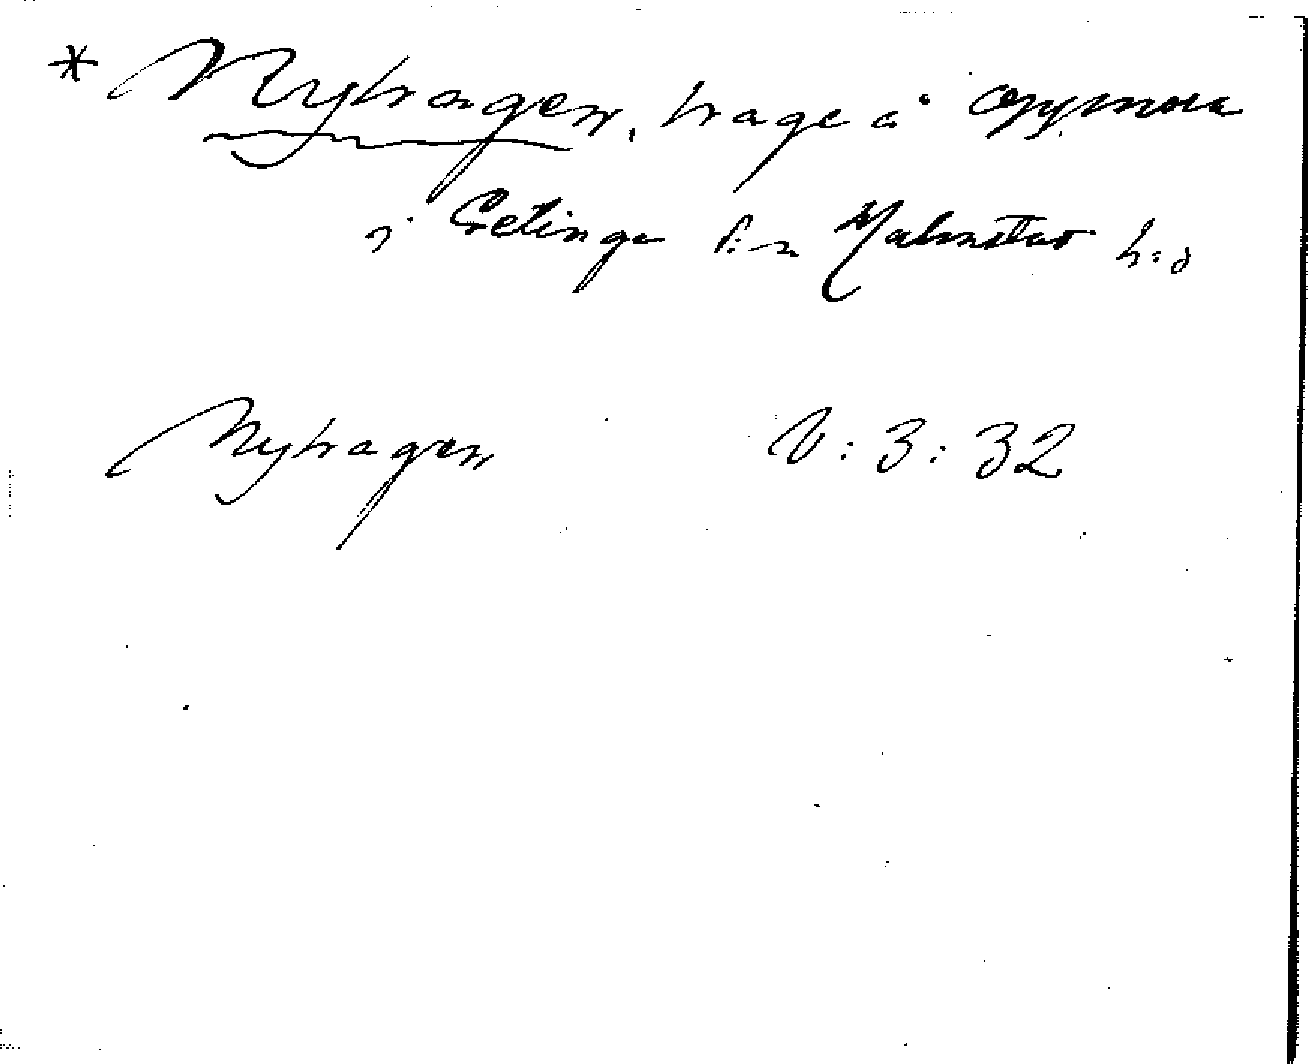 * Nyhagen, hage å
i Getinge s:n Halmstad h:d
Nyhagen V:3:32